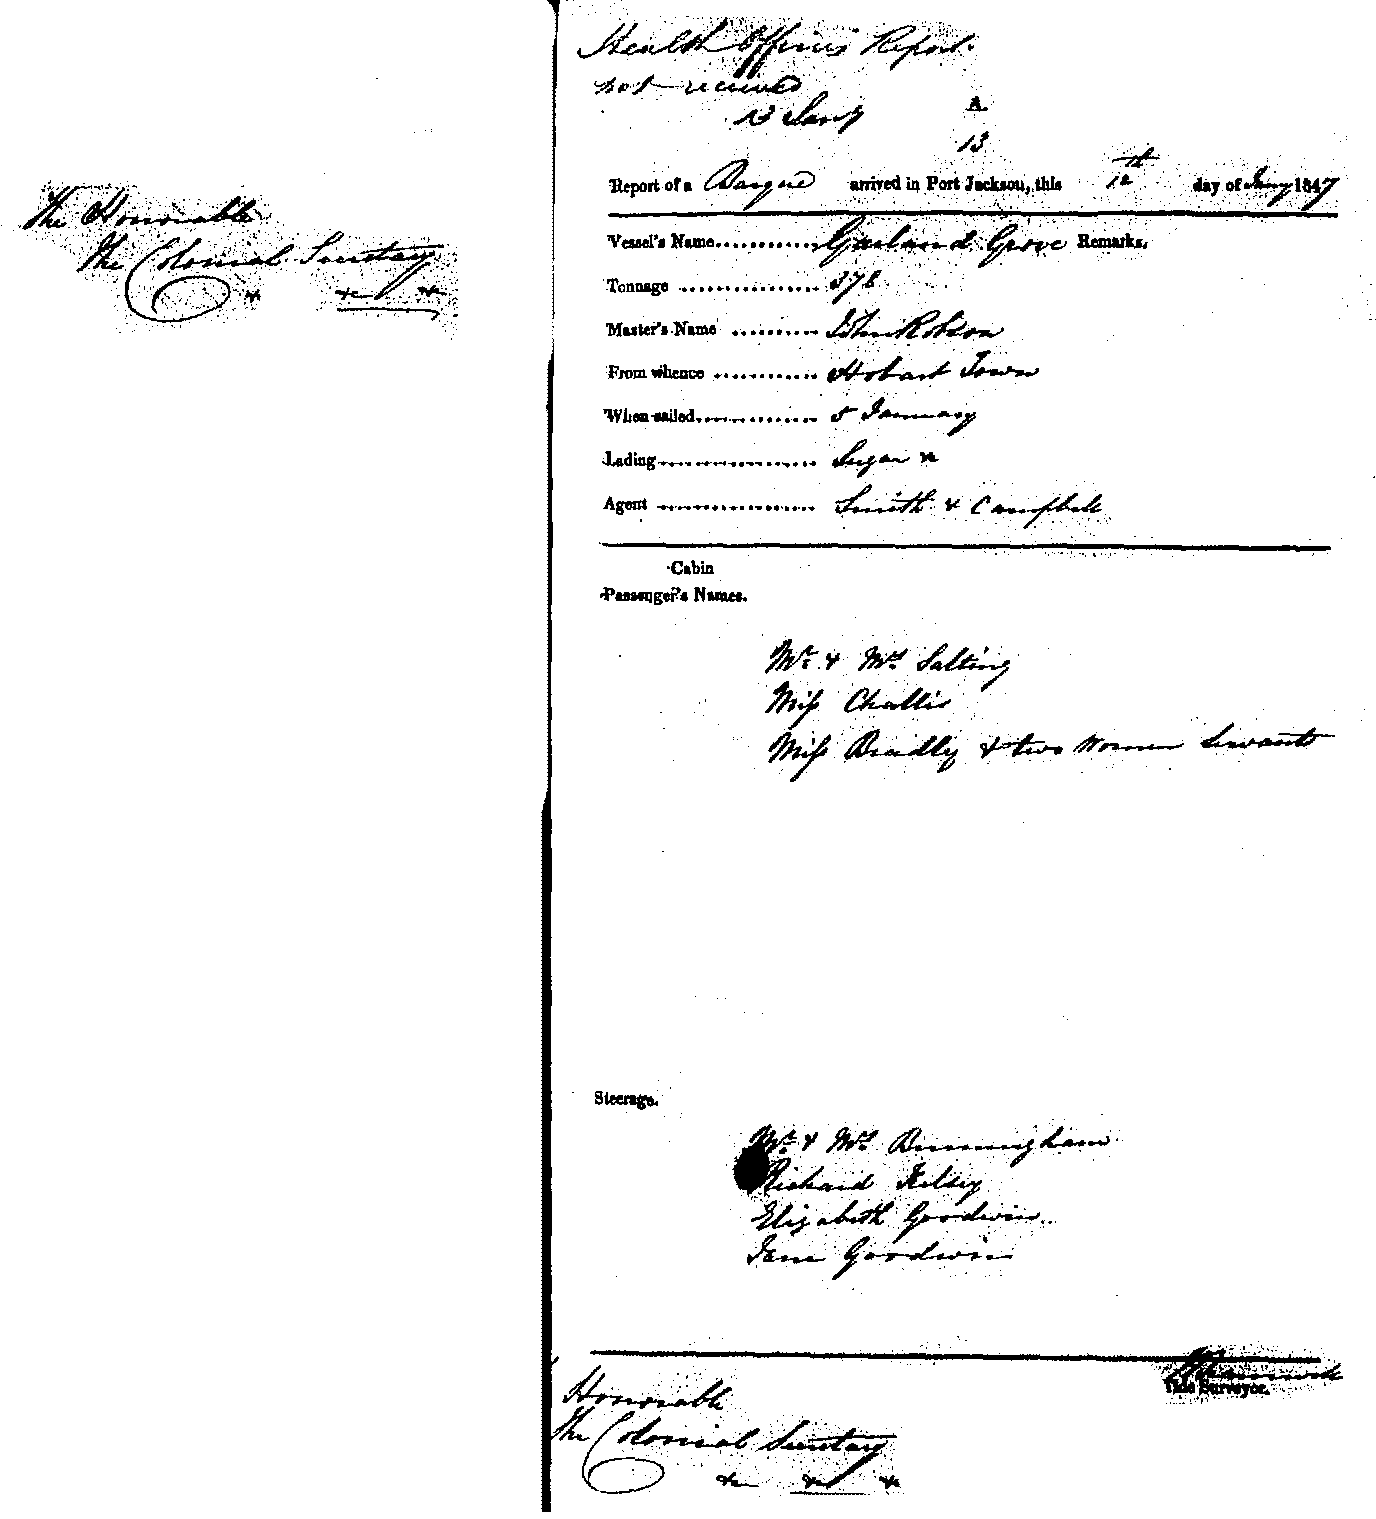 The Honorable
The Colonial Secretary
&c &c &c
Health Officers Report
not received
13 Jany
A.
13
Report of a Barque arrived in Port Jackson, this 12th day of Jany 1847
Vessel's Name............ Garland Grove Remarks.
Tonnage ................ 378
Master's Name .......... John Robson
From whence ............ Hobart Town
When sailed.............. 5 January
Lading.................. Sugar &c
Agent .................. Smith & Campbell
Cabin
Passenger's Names.
Mr. & Mrs. Salting
Miss Challis
Miss Bradly & two Women Servants
Steerage.
Mr. & Mrs. Bunningham
Richard Kelsey
Elizabeth Goodwin
Jane Goodwin
Tide Surveyor.
Honorable
The Colonial Secretary
&c &c &c